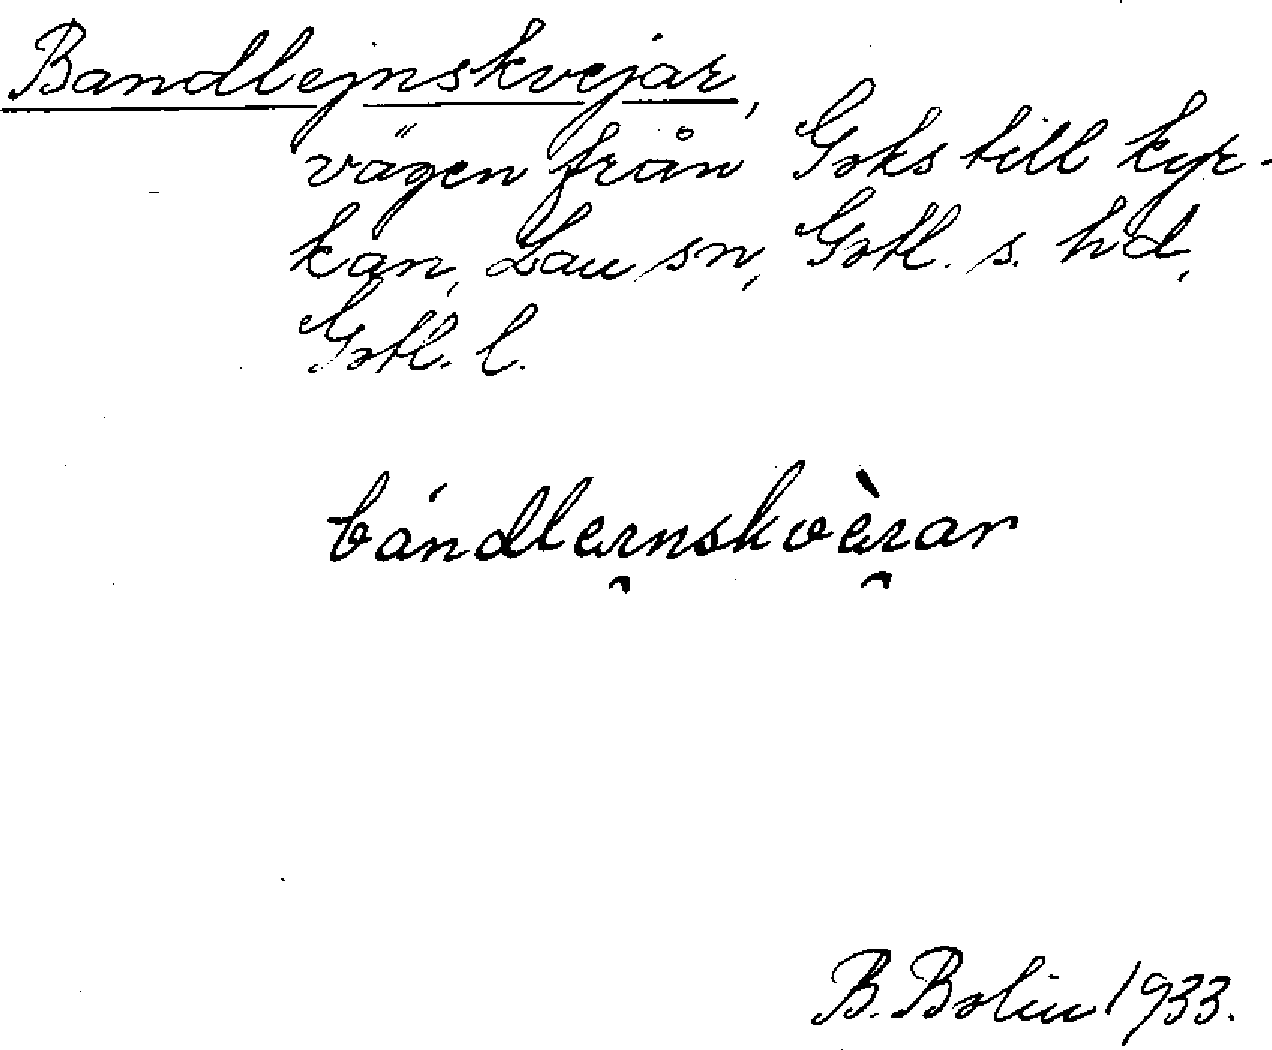 Bandlejnskvejar,
vägen från Goks till kyr-
kan, Lau sn, Gotl. s. hd,
Gotl. l.
bándleınskvèıar
B. Bolin 1933.